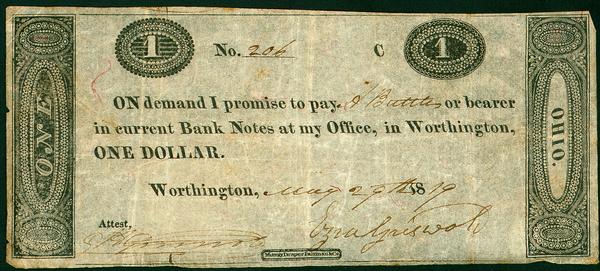 1 No. 206 C 1
ONE
ON demand I promise to pay Buttles or bearer
in current Bank Notes at my Office, in Worthington,
ONE DOLLAR.
Worthington, May 29th 1819
Attest,
Ezra Griswold
Murray Draper Fairman & Co
OHIO.